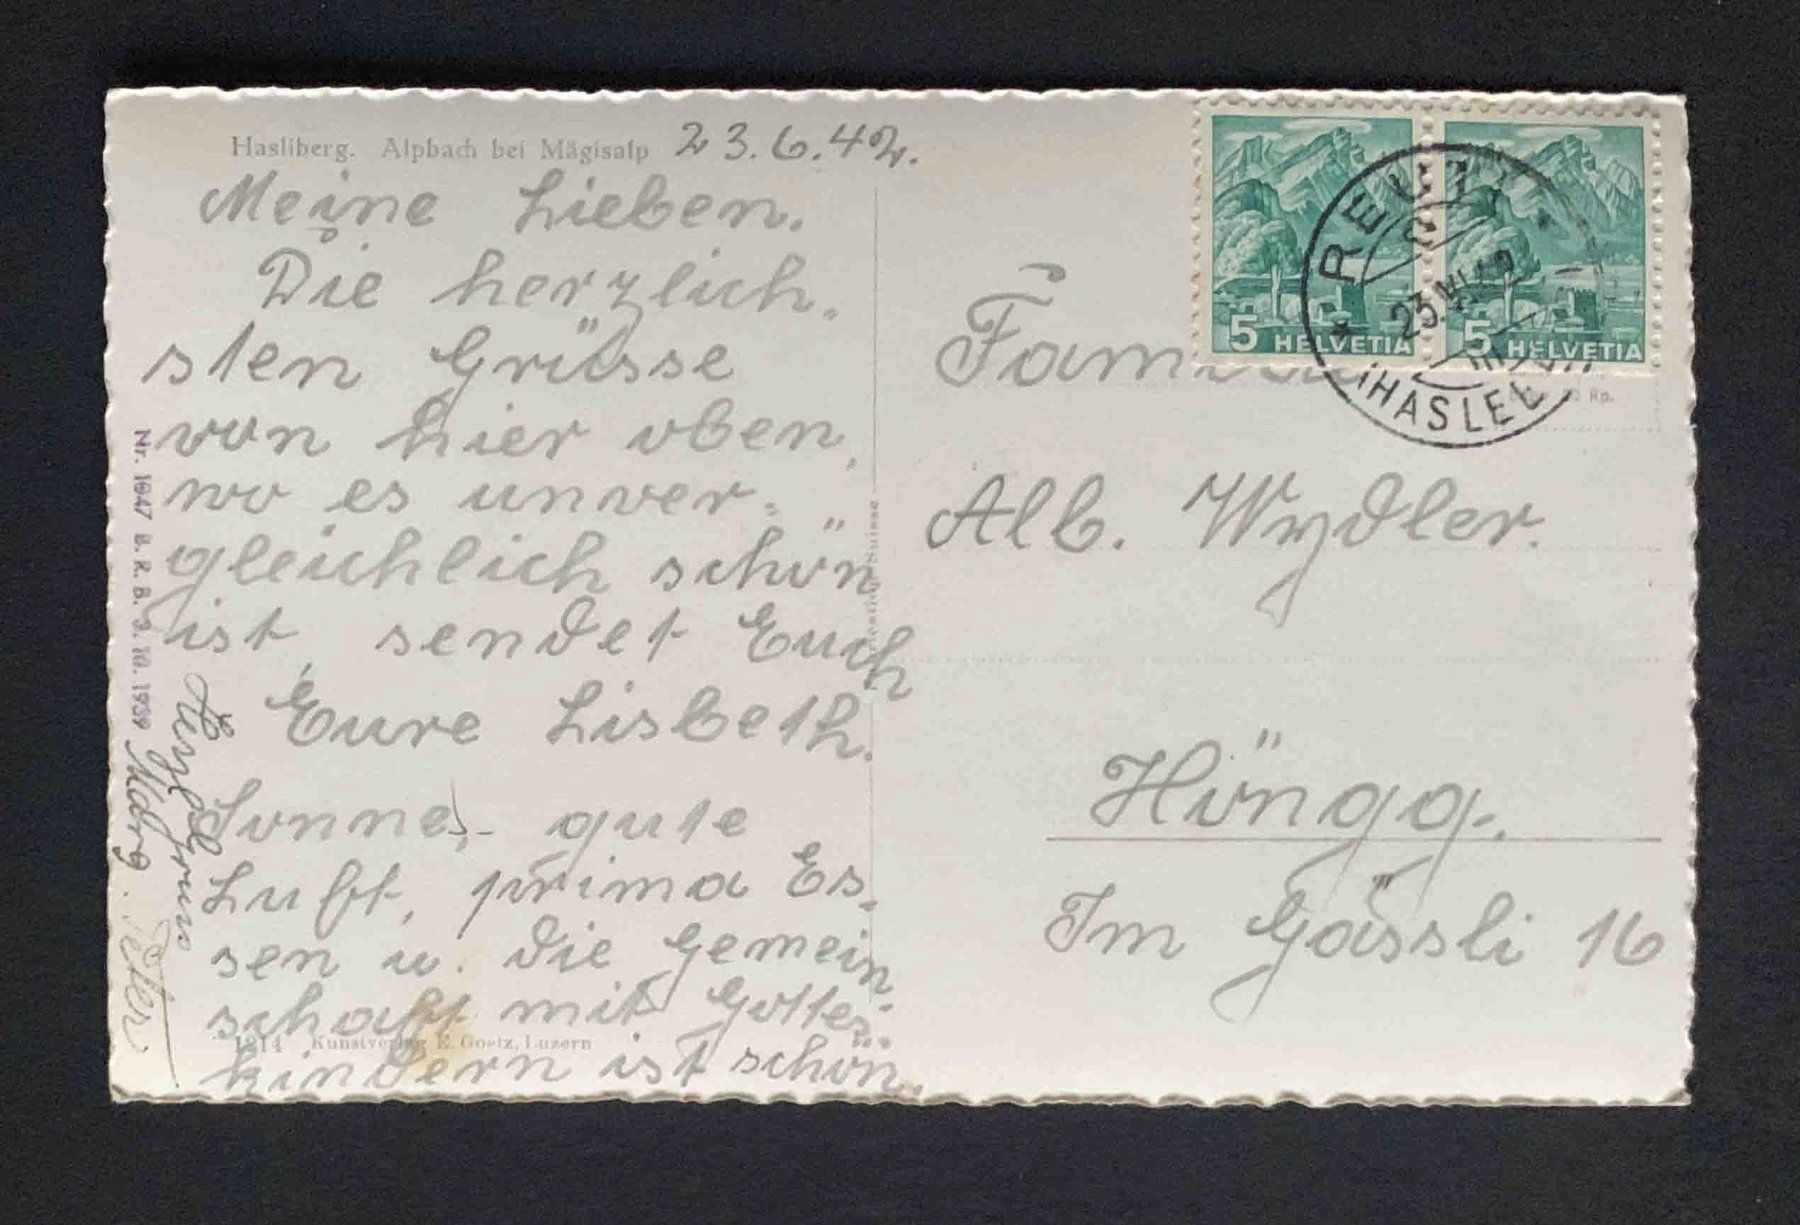 Hasliberg. Alpbach bei Mägisalp 23.6.42.
Meine Lieben.
Die herzlich-
sten Grüsse
von hier oben,
wo es unver-
gleichlich schön
ist, sendet Euch
Eure Lisbeth.
Sonne, gute
Luft, prima Es-
sen u. die Gemein-
schaft mit Gottes-
kindern ist schön.
1214 Kunstverlag E. Goetz, Luzern
Nr. 1047 B. R. B. 3. 10. 1939
Herzl. Gruss
Marg.
5 HELVETIA
5 HELVETIA
REUTI
23.VI.42
(HASLEBERG)
Familie
Alb. Wydler.
Höngg.
Im Gässli 16